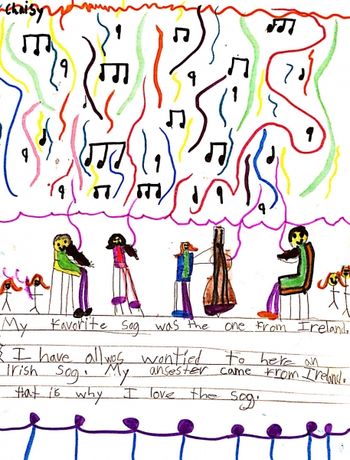 Chrisy
My Favorite Sog was the one From Ireland.
I have allwos wontied to here an
Irish Sog. My ansester came From Ireland.
that is why I love the Sog.